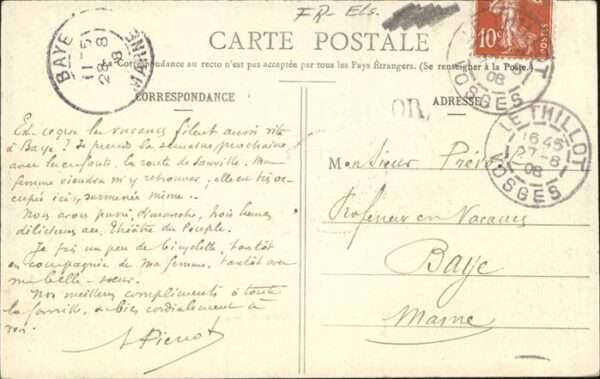 FR - Els.
CARTE POSTALE
La Correspondance au recto n'est pas acceptée par tous les Pays Étrangers. (Se renseigner à la Poste.)
CORRESPONDANCE
ADRESSE
OR,
BAYE
11-5
28-8
08
MARNE
10
POSTES
08
VOSGES
LE THILLOT
16 45
27-8
08
VOSGES
Est-ce que les vacances filent aussi vite
à Baye ? Je prends la semaine prochaine,
avec les enfants, la route de
femme viendra m'y retrouver, elle est très oc-
cupée ici, surmenée même.
Nous avons passé, dimanche, trois heures
délicieuses au Théâtre du Peuple.
Je fais un peu de bicyclette, tantôt
en compagnie de ma femme, tantôt avec
ma belle-sœur.
Nos meilleurs compliments à toute
la famille, et bien cordialement à
Pierrot
Monsieur
Professeur en Vacances
Baye
Marne